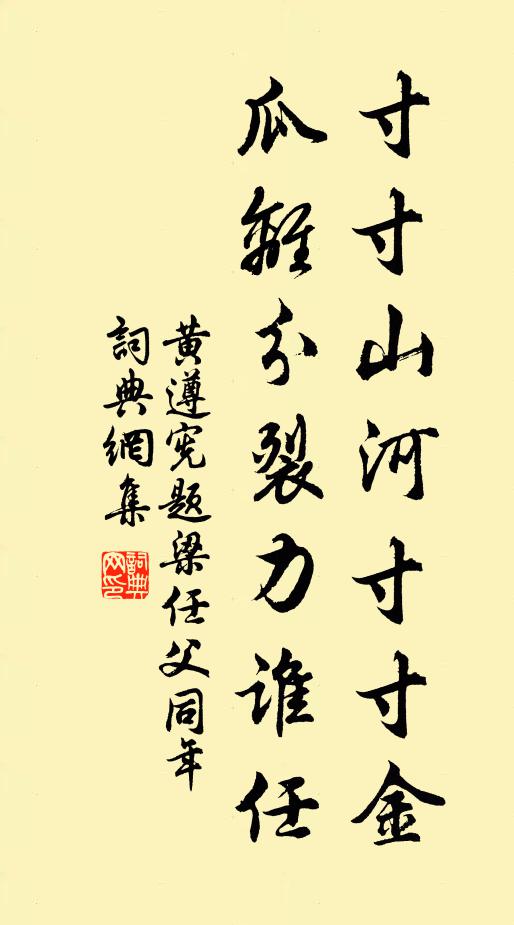 寸寸山河寸寸金
瓜離分裂力誰任
黃遵憲題梁任父同年
詞典網集
詞典網印